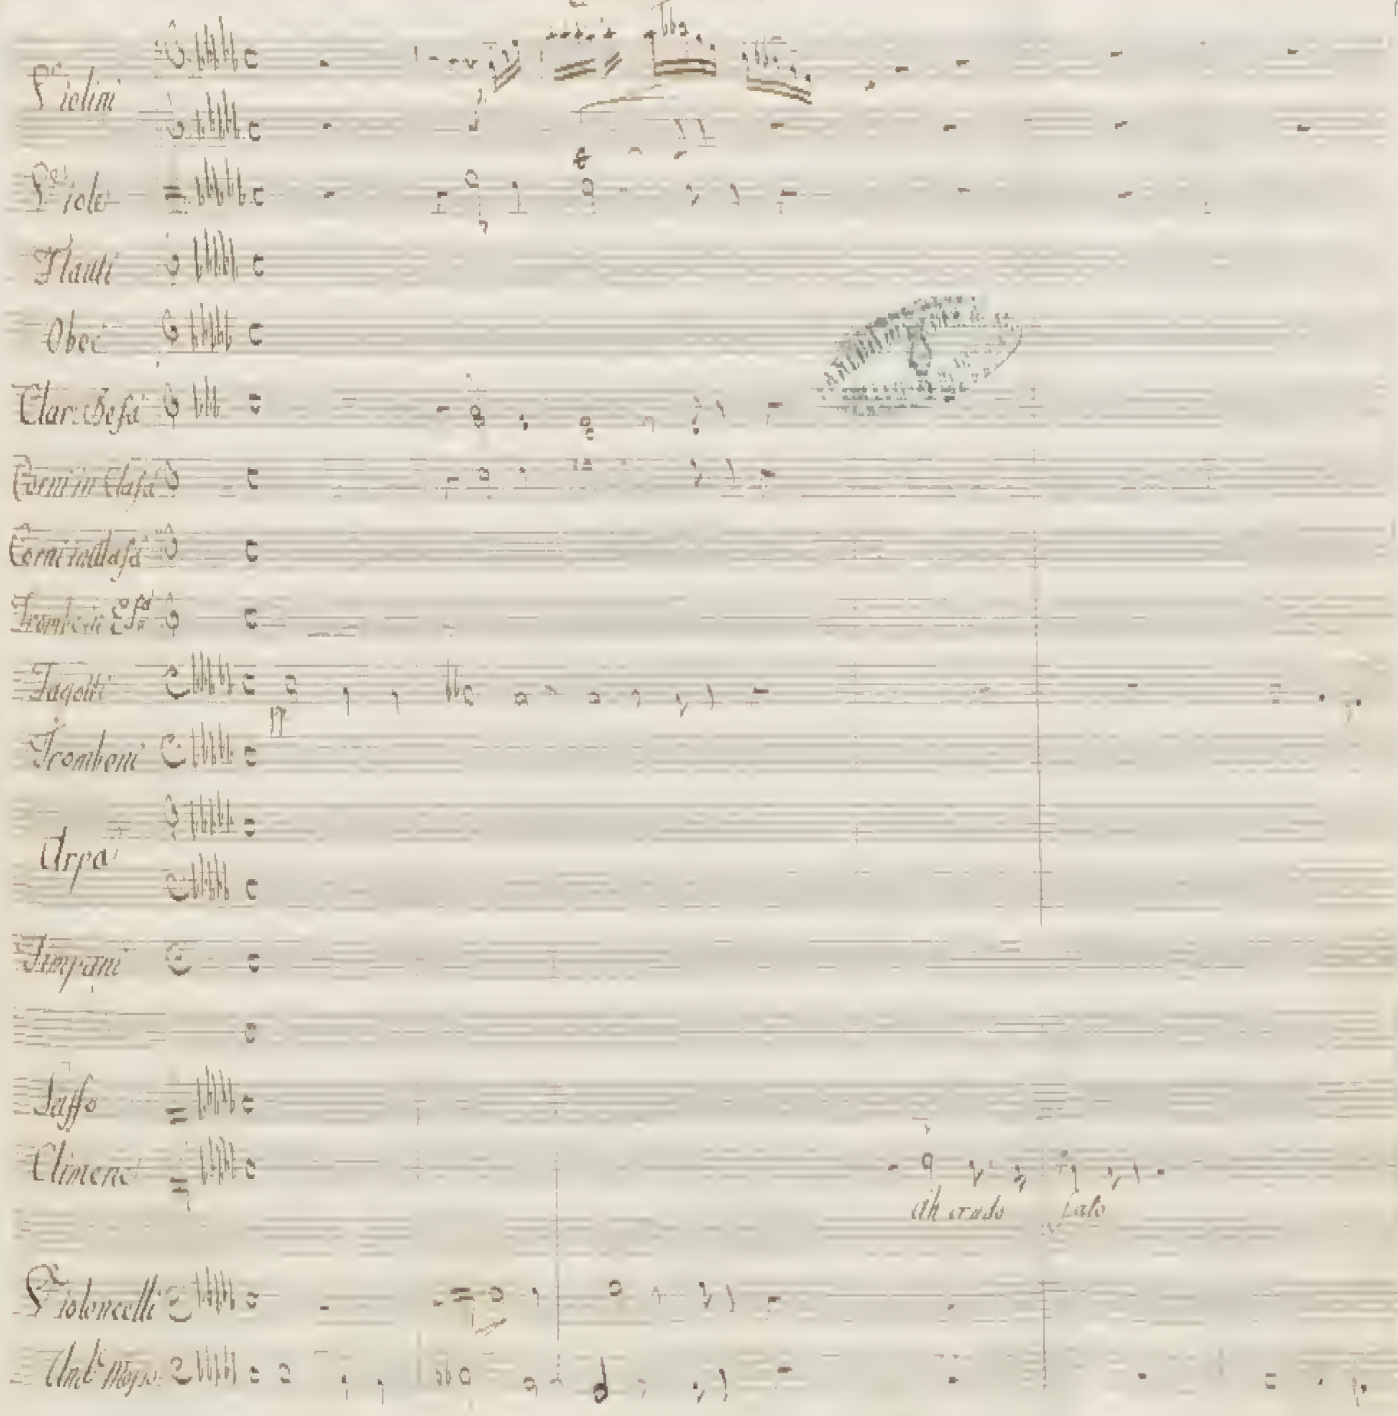 Violini
Viole
Flauti
Oboe
Corni in Elafa
Corni in
Trombe in
Fagotti
Tromboni
Arpa
Timpani
Saffo
Climene
Ah crudo fato
Violoncelli
And.e mosso